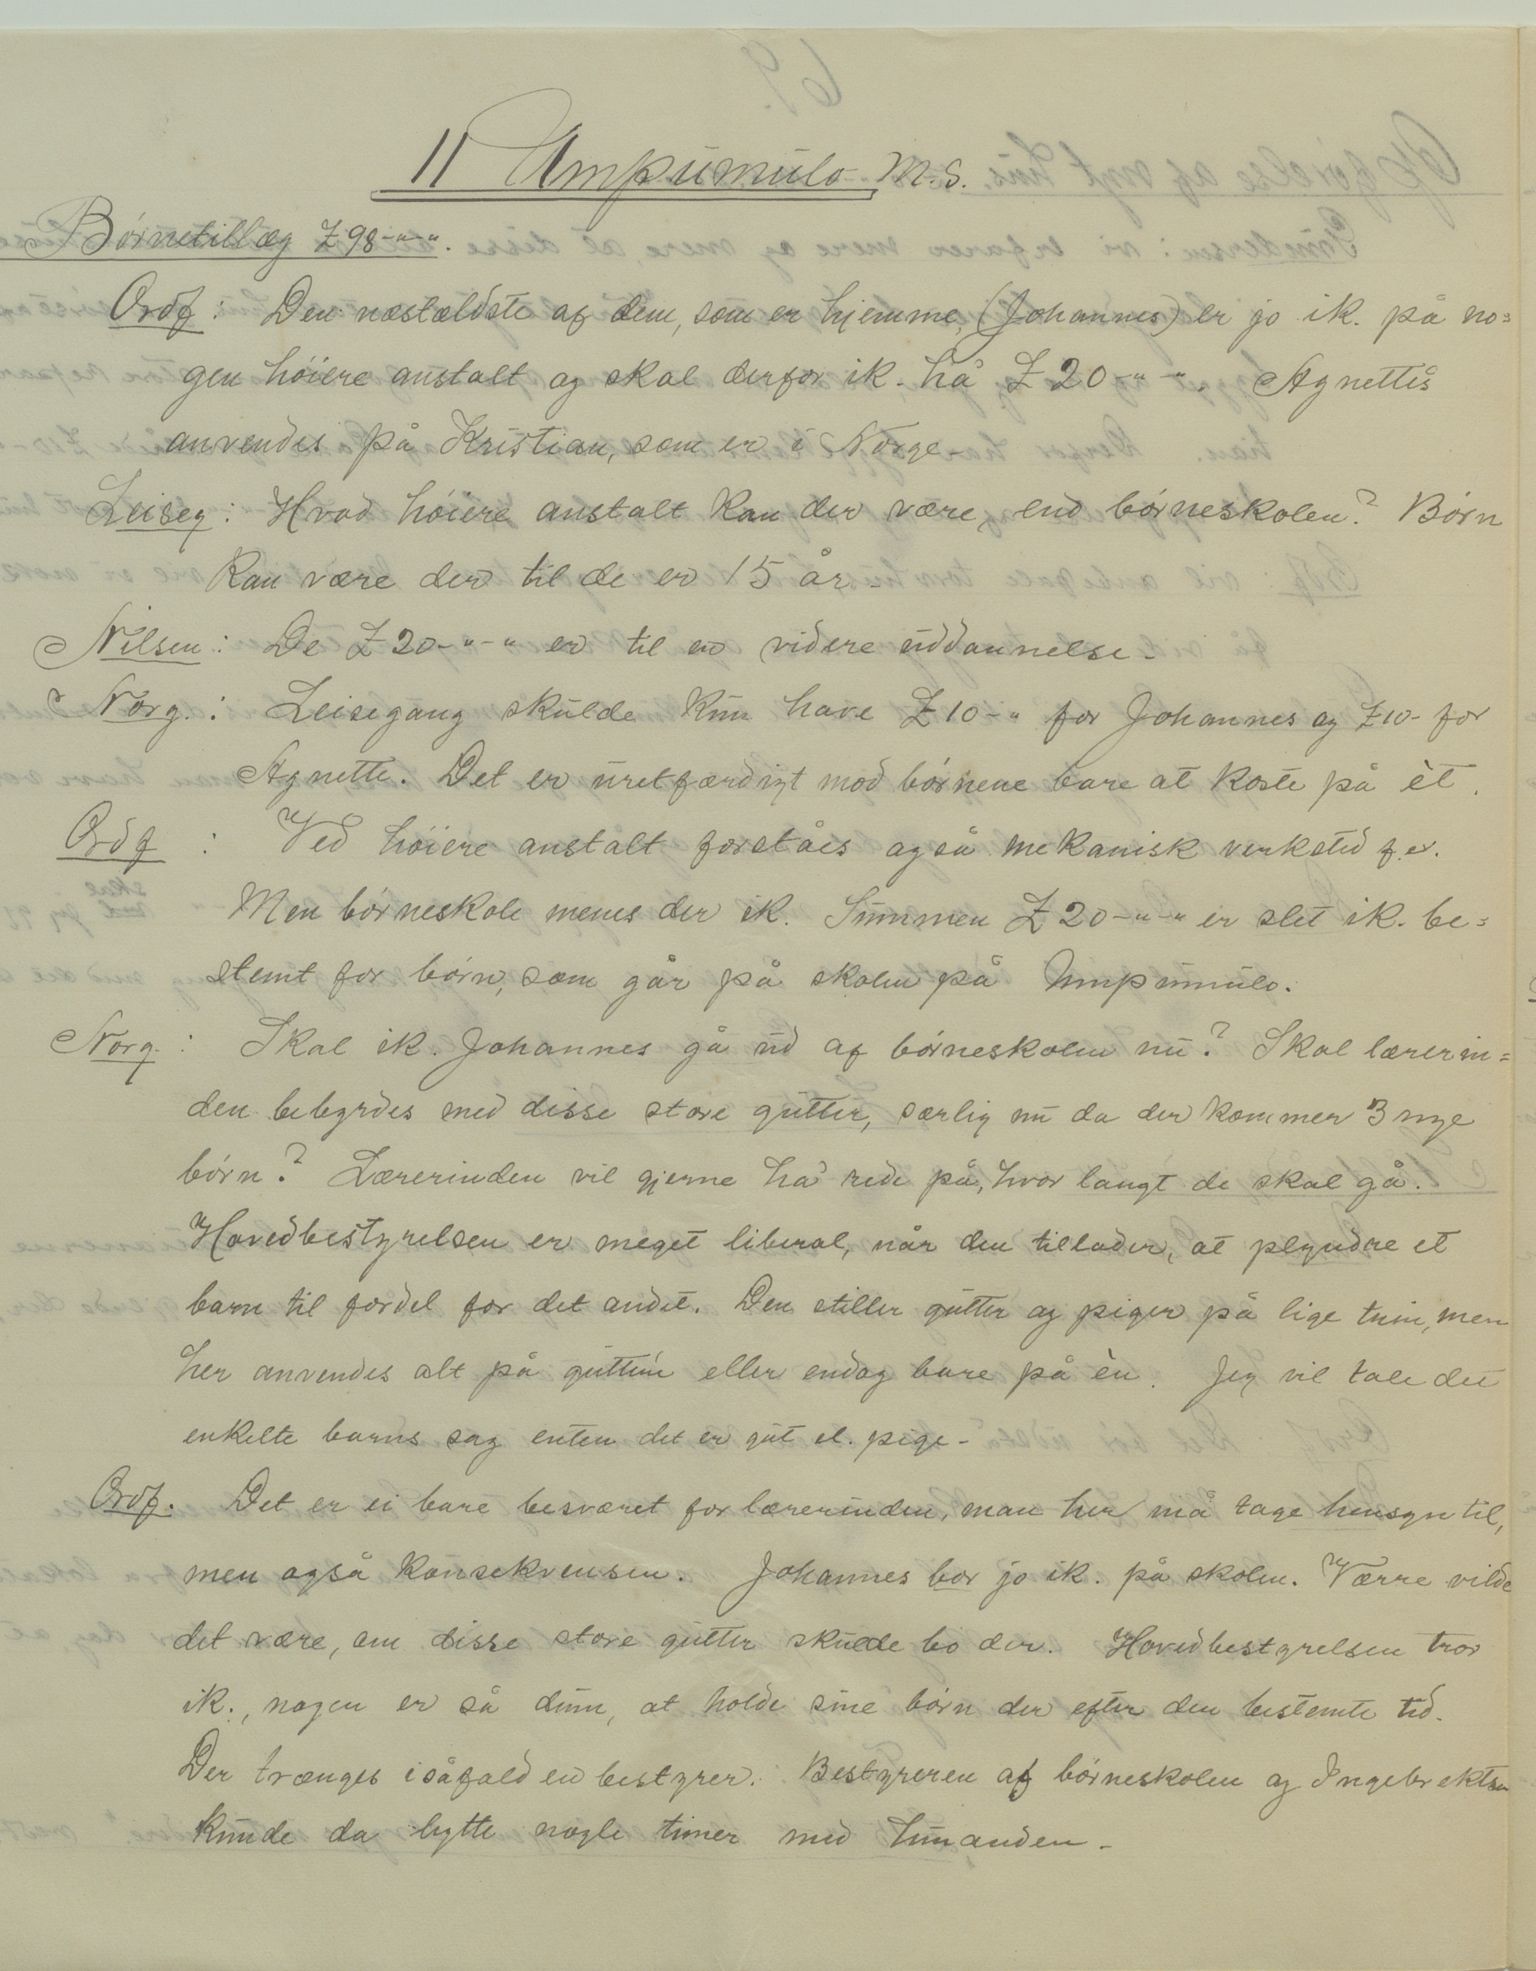 11 Umpumulo M.S.
Børnetillæg £ 98-"-".
Ordf: Den næstældste af dem, som er hjemme, (Johannes) er jo ik. på no=
gen høiere anstalt og skal derfor ik. ha £ 20-"-". Agnettes
anvendes på Kristian, som er i Norge.
Leiseg: Hvad høiere anstalt kan der være, end børneskolen? Børn
kan være der til de er 15 år.
Nilsen: De £ 20-"-" er til en videre uddannelse.
Norg.: Leisegang skulde kun have £ 10-" for Johannes og £ 10- for
Agnette. Det er uretfærdigt mod børnene bare at koste på èt.
Ordf: Ved høiere anstalt forståes også mekanisk verksted f.ex.
Men børneskole menes der ik. Summen £ 20-"-" er slet ik. be=
stemt for børn, som går på skolen på Umpumulo.
Norg: Skal ik. Johannes gå ud af børneskolen nu? Skal lærerin=
den bebyrdes med disse store gutter, særlig nu da der kommer 3 nye
børn? Lærerinden vil gjerne ha rede på, hvor langt de skal gå.
Hovedbestyrelsen er meget liberal, når den tillader, at plyndre et
barn til fordel for det andet. Den stiller gutter og piger på lige trin, men
her anvendes alt på guttene eller endog bare på èn. Jeg vil tale det
enkelte barns sag enten det er gut el. pige.
Ordf. Det er ei bare besværet for lærerinden, man her må tage hensyn til,
men også konsekvensen. Johannes bor jo ik. på skolen. Værre vilde
det være, om disse store gutter skulde bo der. Hovedbestyrelsen tror
ik., nogen er så dum, at holde sine børn der efter den bestemte tid.
Der trænges isåfald en bestyrer. Bestyreren af børneskolen og Ingebrektsen
kunde da bytte nogle timer med hinanden.